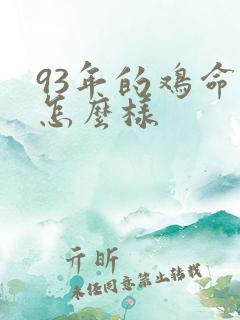 93年的鸡命
怎麼様
亓昕
未经同意禁止转载